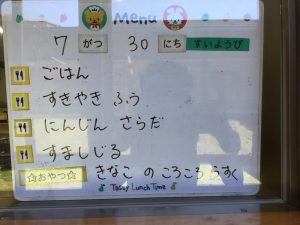 Menu
7 がつ 30 にち すいようび
ごはん
すきやき ふう
にんじん さらだ
すましじる
☆おやつ☆ きなこ の ころころ らすく
Tasty Lunch Time